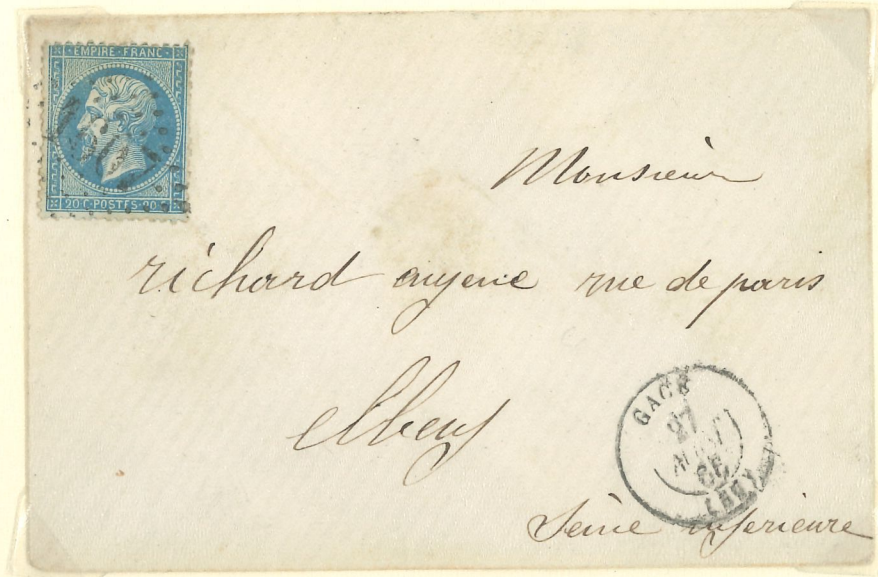 EMPIRE FRANC
20 C POSTES 20
Monsieur
richard eugene rue de paris
elbeuf
GACE
27
66
Seine inferieure